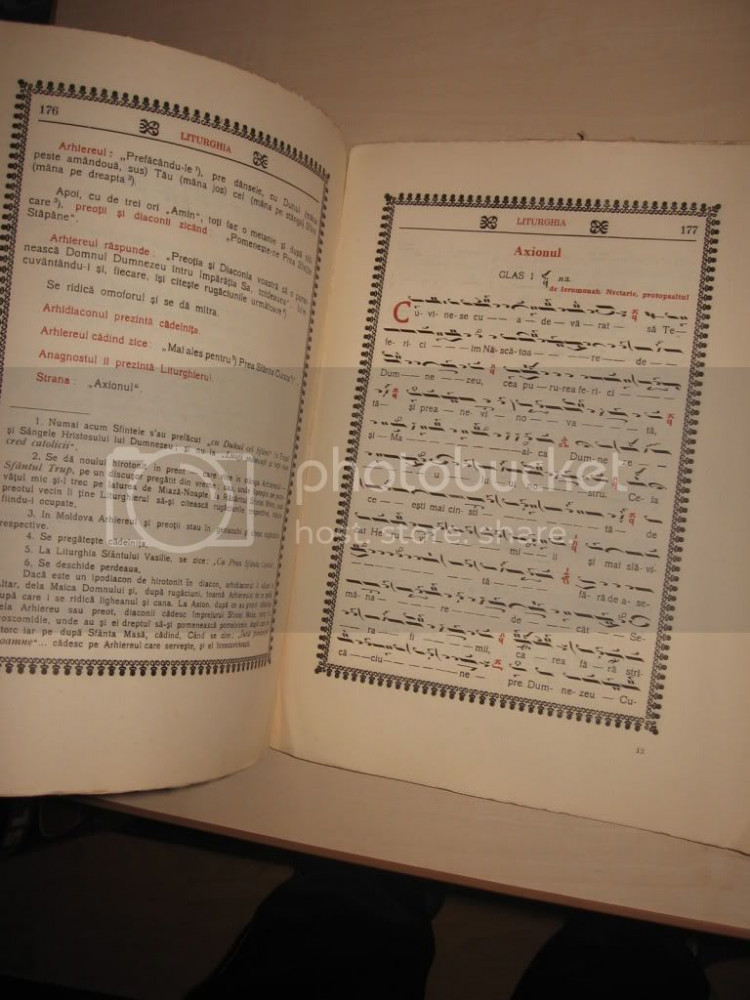 176
LITURGHIA
Arhiereul : „Prefăcându-le ¹), pre dânsele, cu Duhul (mâna
peste amândouă, sus) Tău (mâna jos) cel (mâna pe stânga) Sfânt
(mâna pe dreapta ²).
Apoi, cu de trei ori „Amin", toți fac o metanie și după
care ³), preoții și diaconii zicând : „Pomenește-ne Prea Sfințite
Stăpâne".
Arhiereul răspunde : „Preoția și Diaconia voastră să o
nească Domnul Dumnezeu întru Împărăția Sa, totdeauna".
cuvântându-i și, fiecare, își citește rugăciunile următoare ⁴).
Se ridică omoforul și se dă mitra.
Arhidiaconul prezintă cădelnița.
Arhiereul cădind zice : „Mai ales pentru ⁵) Prea Sfânta Curata
Anagnostul îi prezintă Liturghierul.
Strana : „Axionul".
1. Numai acum Sfintele s'au prefăcut „cu Duhul cel Sfânt" în Trupul
și Sângele Hristosului lui Dumnezeu
cred catolicii".
2. Se dă noului hirotonit în preot
Sfântul Trup, pe un discuitor pregătit din vreme,
vățul mic și-l trec pe laturea de Miază-Noapte a
preotul vecin îi ține Liturghierul să-și citească rugăciunile
fiind-i ocupate.
3. În Moldova Arhiereul și preoții stau în genunchi
respective.
4. Se pregătește cădelnița.
5. La Liturghia Sfântului Vasilie, se zice :
6. Se deschide perdeaua.
Dacă este un ipodiacon de hirotonit în diacon,
ltar, dela Maica Domnului și, după rugăciuni,
după care i se ridică ligheanul și cana. La Axion, după ce
ela Arhiereu sau preot, diaconii cădesc împrejurul Sfintei Mese,
roscomidie, unde au și ei dreptul să-și pomenească
torc iar pe după Sfânta Masă, cădind. Când se zice :
oamne"... cădesc pe Arhiereul care servește, și el
LITURGHIA
177
Axionul
GLAS I
de Ieromonah. Nectarie, protopsaltul
Cu-vi-ne-se cu — — a — de — vă — rat — să Te —
fe — ri — ci — — im Năs-că-toa — — — re — — de —
Dum — — ne — zeu, cea pu — ru-rea fe-ri — ci —
tă — și prea — ne — vi — no — va — tă, —
și — Ma — — — — — — — ai-ca Dum — ne — re —
nos — tru. Ce-ia
ce — — ești mai cin-sti — — tă — de —
cât He
mi — — ii — și mai slă-vi-
tă — — — — fă- ră de a-se-
mă-na — — — — re — — de — — cât Se-
ra — — fi — — — mii, că — rea fă — ră stri-
că — — ciu — — — — ne — pre Dum — ne-zeu Cu-
12
photobucket
host. store. share.